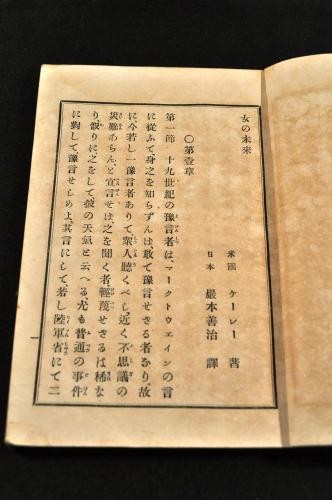 女の未來
米國 ケーレー 著
日本 巖本善治 譯
〇第壹章
第一節 十九世紀の豫言者は、マークトウェインの言
に從ふて身之を知らずんは、敢て豫言せざる者なり、故
に、今若し一豫言者ありて、衆人聽くべし、近く不思議の
災難あらん、と宣言せば、之を聞く者輕蔑せざるは稀な
り、假りに之をして彼の天氣と云へる、尤も普通の事件
に對して、豫言せしめよ、其言にして、若し陸軍省にて二